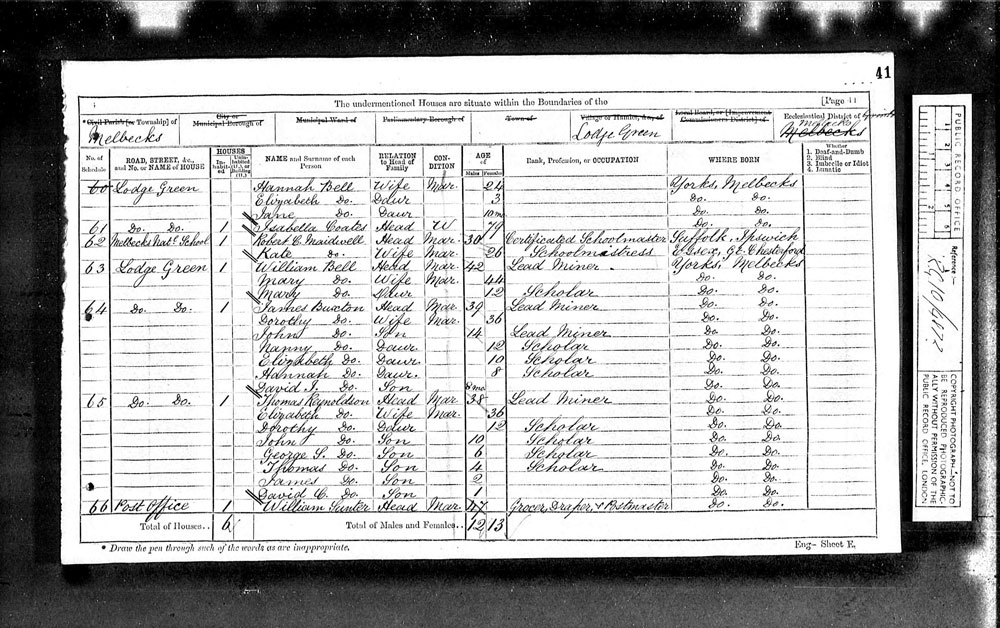 41
The undermentioned Houses are situate within the Boundaries of the
[Page 41
Civil Parish [or Township] of
City or Municipal Borough of
Municipal Ward of
Parliamentary Borough of
Town of
Village or Hamlet, &c., of
Local Board, or [Improvement Commissioners District] of
Ecclesiastical District of
Melbecks
Lodge Green
Melbecks
No. of Schedule
ROAD, STREET, &c., and No. or NAME of HOUSE
HOUSES
Inhabited
Uninhabited (U.), or Building (B.)
NAME and Surname of each Person
RELATION to Head of Family
CONDITION
AGE of
Males
Females
Rank, Profession, or OCCUPATION
WHERE BORN
Whether
1. Deaf-and-Dumb
2. Blind
3. Imbecile or Idiot
4. Lunatic
60 Lodge Green Hannah Bell Wife Mar. 24 Yorks, Melbecks
Elizabeth Do. Daur 3 Do. Do.
Jane Do. Daur 10 mo Do. Do.
61 Do. Do. 1 Isabella Coates Head W 79 Do. Do.
62 Melbecks Natl. School 1 Robert C. Maidwell Head Mar. 30 Certificated Schoolmaster Suffolk, Ipswich
Kate Do. Wife Mar. 26 Schoolmistress Essex, Gt. Chesterford
63 Lodge Green 1 William Bell Head Mar. 42 Lead Miner Yorks, Melbecks
Mary Do. Wife Mar. 44 Do. Do.
Mary Do. Daur 12 Scholar Do. Do.
64 Do. Do. 1 James Buxton Head Mar 39 Lead Miner Do. Do.
Dorothy Do. Wife Mar. 36 Do. Do.
John Do. Son 14 Lead Miner Do. Do.
Nanny Do. Daur. 12 Scholar Do. Do.
Elizabeth Do. Daur. 10 Scholar Do. Do.
Hannah Do. Daur. 8 Scholar Do. Do.
David J. Do. Son 8 mo. Do. Do.
65 Do. Do. 1 Thomas Reynoldson Head Mar 38 Lead Miner Do. Do.
Elizabeth Do. Wife Mar. 36 Do. Do.
Dorothy Do. Daur 12 Scholar Do. Do.
John Do. Son 10 Scholar Do. Do.
George S. Do. Son 6 Scholar Do. Do.
Thomas Do. Son 4 Scholar Do. Do.
James Do. Son 2 Do. Do.
David C. Do. Son 1 Do. Do.
66 Post Office 1 William Head Mar 47 Grocer, Draper, & Postmaster Do. Do.
Total of Houses.. 6
Total of Males and Females.. 12 13
* Draw the pen through such of the words as are inappropriate.
Eng- Sheet E.
PUBLIC RECORD OFFICE
1 2 3 4 5 6
Reference :-
RG 10/4872
COPYRIGHT PHOTOGRAPH - NOT TO BE REPRODUCED PHOTOGRAPHICALLY WITHOUT PERMISSION OF THE PUBLIC RECORD OFFICE, LONDON